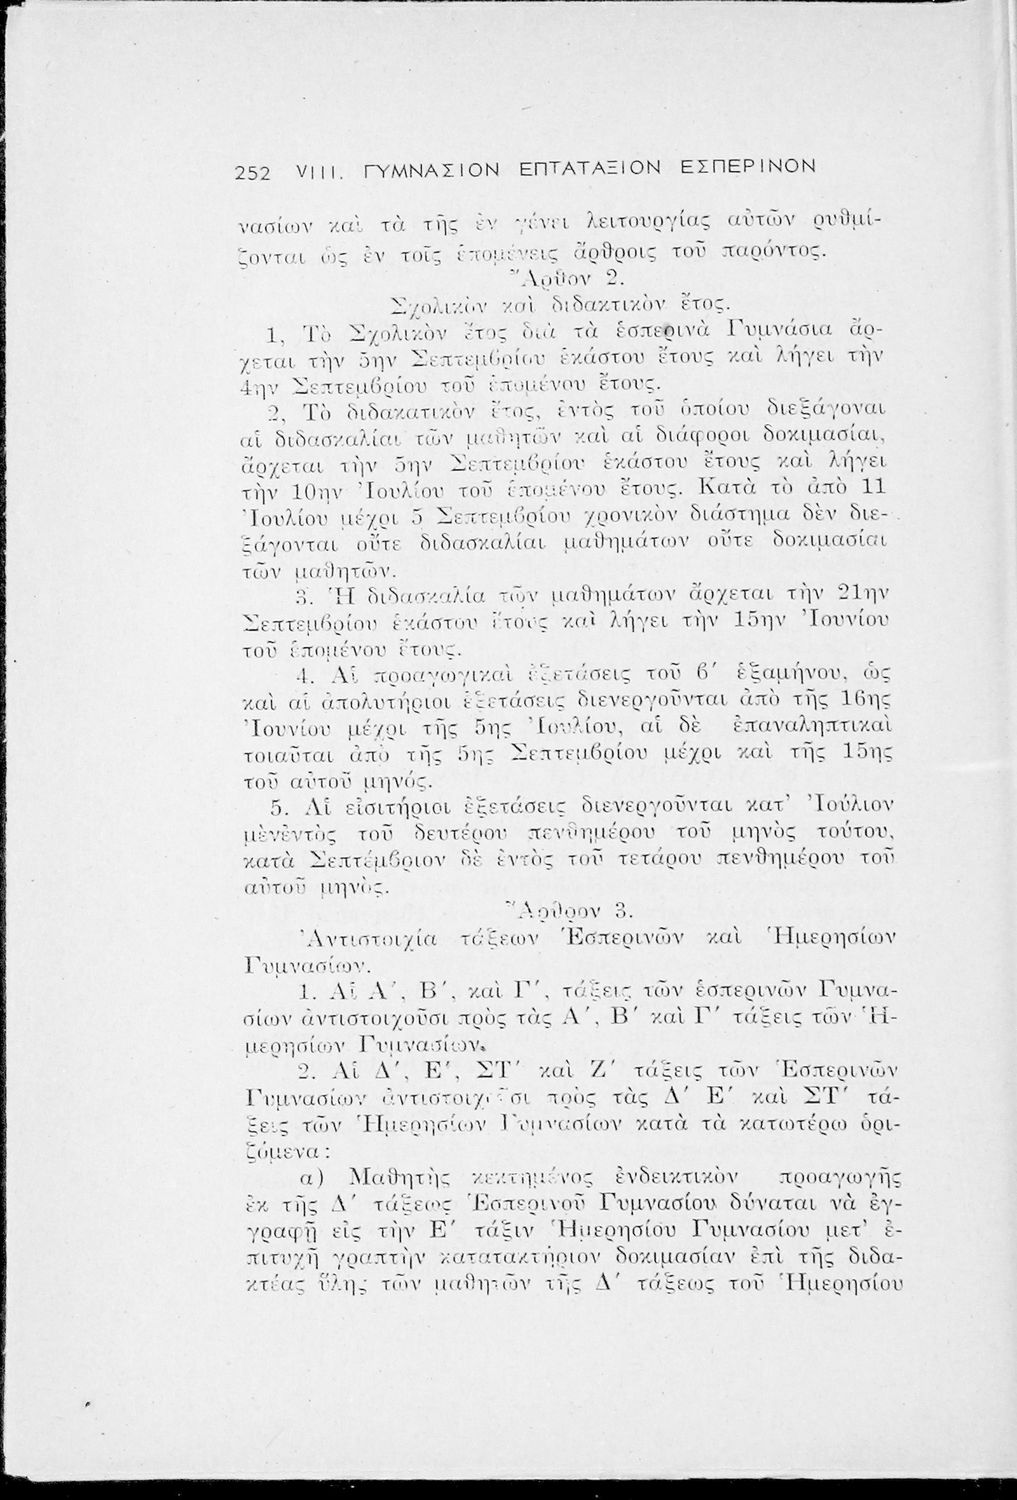 252 VIII. ΓΥΜΝΑΣΙΟΝ ΕΠΤΑΤΑΞΙΟΝ ΕΣΠΕΡΙΝΟΝ
νασίων καὶ τὰ τῆς ἐν γένει λειτουργίας αὐτῶν ρυθμί-
ζονται ὡς ἐν τοῖς ἑπομένεις ἄρθροις τοῦ παρόντος.
Ἄρθον 2.
Σχολικὸν καὶ διδακτικὸν ἔτος.
1, Τὸ Σχολικὸν ἔτος διὰ τὰ ἑσπερινὰ Γυμνάσια ἄρ-
χεται τὴν 5ην Σεπτεμβρίου ἑκάστου ἔτους καὶ λήγει τὴν
4ην Σεπτεμβρίου τοῦ ἑπομένου ἔτους.
2, Τὸ διδακατικὸν ἔτος, ἐντὸς τοῦ ὁποίου διεξάγοναι
αἱ διδασκαλίαι τῶν μαθητῶν καὶ αἱ διάφοροι δοκιμασίαι,
ἄρχεται τὴν 5ην Σεπτεμβρίου ἑκάστου ἔτους καὶ λήγει
τὴν 10ην Ἰουλίου τοῦ ἑπομένου ἔτους. Κατὰ τὸ ἀπὸ 11
Ἰουλίου μέχρι 5 Σεπτεμβρίου χρονικὸν διάστημα δὲν διε-
ξάγονται οὔτε διδασκαλίαι μαθημάτων οὔτε δοκιμασίαι
τῶν μαθητῶν.
3. Ἡ διδασκαλία τῶν μαθημάτων ἄρχεται τὴν 21ην
Σεπτεμβρίου ἑκάστου ἔτους καὶ λήγει τὴν 15ην Ἰουνίου
τοῦ ἑπομένου ἔτους.
4. Αἱ προαγωγικαὶ ἐξετάσεις τοῦ β΄ ἑξαμήνου, ὡς
καὶ αἱ ἀπολυτήριοι ἐξετάσεις διενεργοῦνται ἀπὸ τῆς 16ης
Ἰουνίου μέχρι τῆς 5ης Ἰουλίου, αἱ δὲ ἐπαναληπτικαὶ
τοιαῦται ἀπὸ τῆς 5ης Σεπτεμβρίου μέχρι καὶ τῆς 15ης
τοῦ αὐτοῦ μηνός.
5. Αἱ εἰσιτήριοι ἐξετάσεις διενεργοῦνται κατ' Ἰούλιον
μὲνἐντὸς τοῦ δευτέρου πενθημέρου τοῦ μηνὸς τούτου,
κατὰ Σεπτέμβριον δὲ ἐντὸς τοῦ τετάρου πενθημέρου τοῦ
αὐτοῦ μηνὸς.
Ἄρθρον 3.
Ἀντιστοιχία τάξεων Ἑσπερινῶν καὶ Ἡμερησίων
Γυμνασίων.
1. Αἱ Α΄, Β΄, καὶ Γ΄, τάξεις τῶν ἑσπερινῶν Γυμνα-
σίων ἀντιστοιχοῦσι πρὸς τὰς Α΄, Β΄ καὶ Γ΄ τάξεις τῶν Ἡ-
μερησίων Γυμνασίων.
2. Αἱ Δ΄, Ε΄, ΣΤ΄ καὶ Ζ΄ τάξεις τῶν Ἑσπερινῶν
Γυμνασίων ἀντιστοιχοῦσι πρὸς τὰς Δ΄ Ε΄ καὶ ΣΤ΄ τά-
ξεις τῶν Ἡμερησίων Γυμνασίων κατὰ τὰ κατωτέρω ὁρι-
ζόμενα:
α) Μαθητὴς κεκτημένος ἐνδεικτικὸν προαγωγῆς
ἐκ τῆς Δ΄ τάξεως Ἑσπερινοῦ Γυμνασίου δύναται νὰ ἐγ-
γραφῇ εἰς τὴν Ε΄ τάξιν Ἡμερησίου Γυμνασίου μετ' ἐ-
πιτυχῆ γραπτὴν κατατακτήριον δοκιμασίαν ἐπὶ τῆς διδα-
κτέας ὕλης τῶν μαθητῶν τῆς Δ΄ τάξεως τοῦ Ἡμερησίου